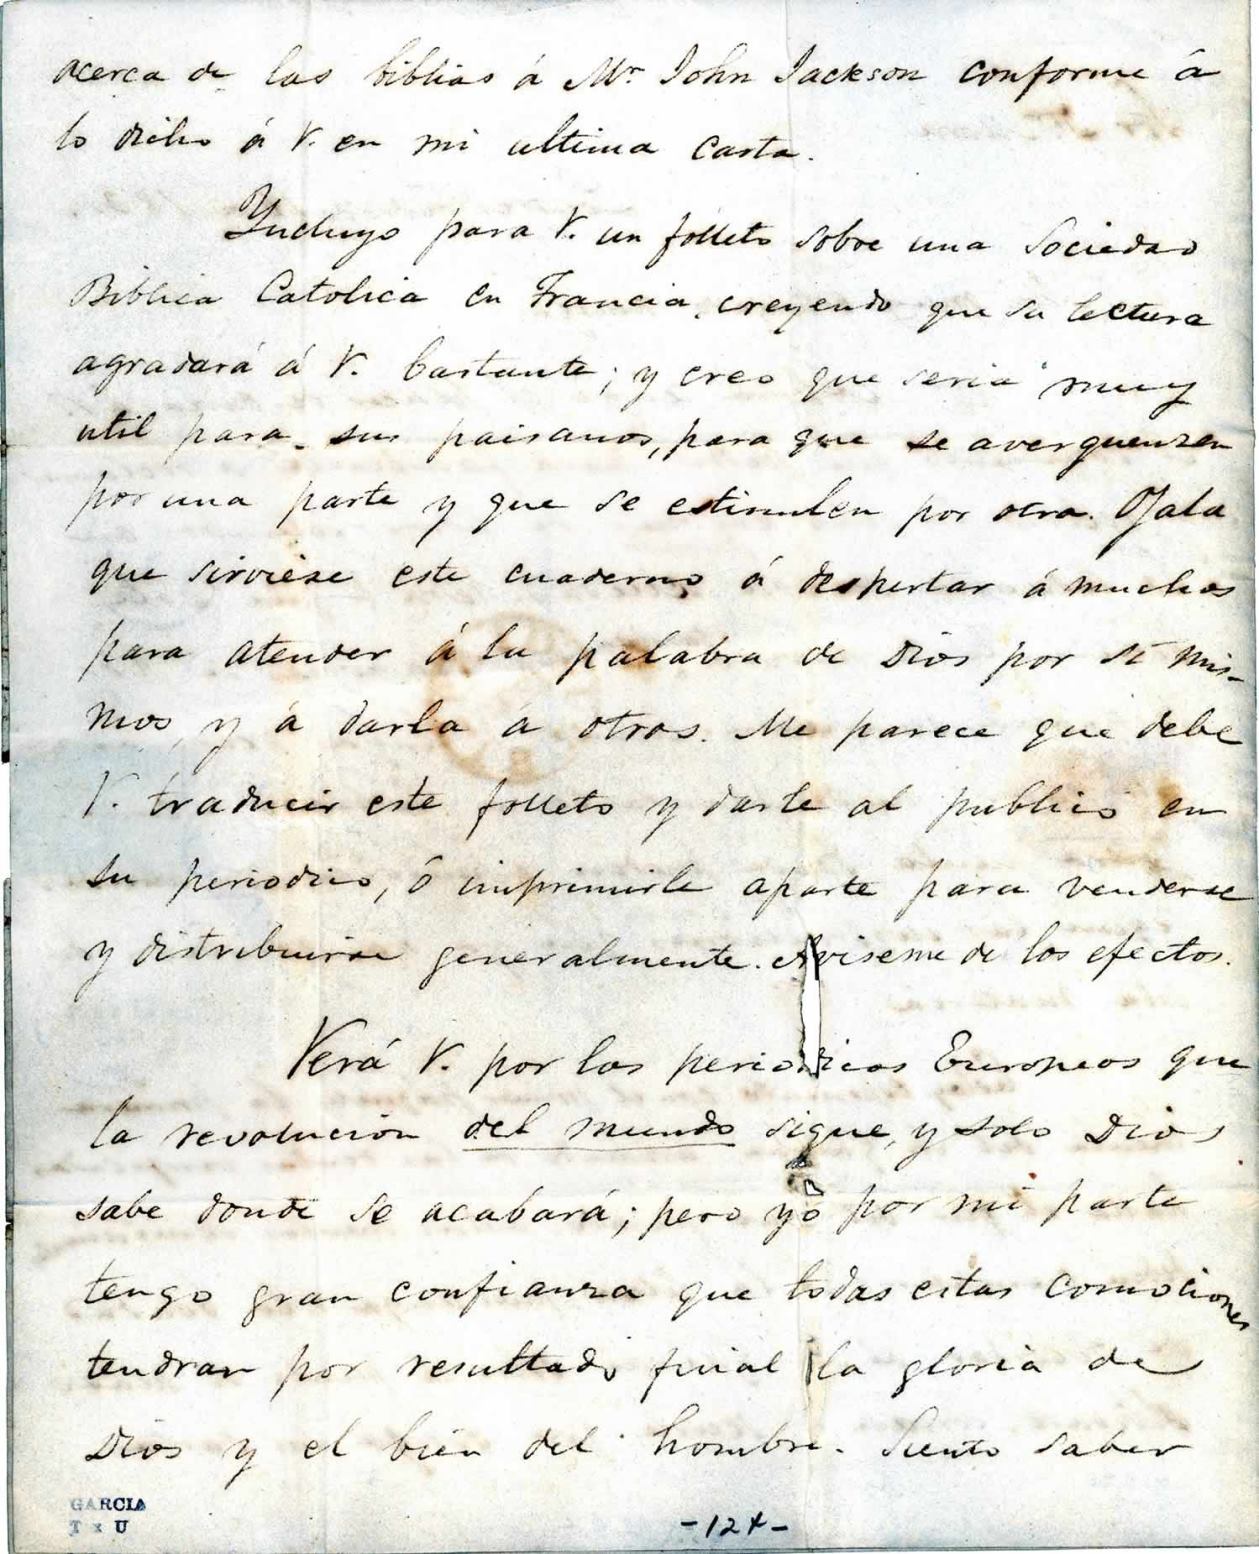 acerca de las biblias á Mr John Jackson conforme á
lo dicho á V. en mi ultima carta.
Yncluyo para V. un folleto sobre una Sociedad
Biblica Catolica en Francia, creyendo que su lectura
agradará á V. bastante; y creo que seria muy
util para sus paisanos, para que se averguenzen
por una parte y que se estimulen por otra. Ojala
que sirviese este cuaderno á despertar á muchos
para atender á la palabra de Dios por sí mis-
mos, y á darla á otros. Me parece que debe
V. traducir este folleto y darle al publico en
su periodico, ó imprimirle aparte para venderse
y distribuirse generalmente. Aviseme de los efectos.
Verá V. por los periodicos Europeos que
la revolucion del mundo sigue, y solo Dios
sabe donde se acabará; pero yo por mi parte
tengo gran confianza que todas estas comociones
tendran por resultado final la gloria de
Dios y el bien del hombre. Siento saber
GARCIA
T x U
-124-